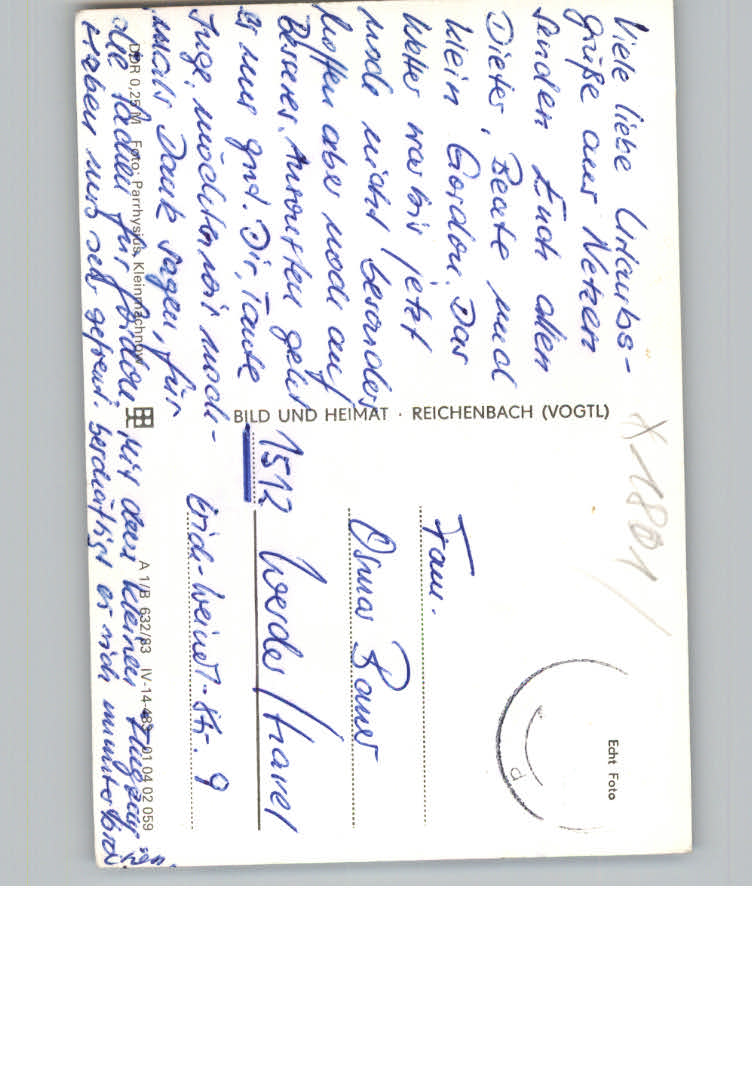 Viele liebe Urlaubs-
grüße aus Netzen
senden Euch allen
Dieter, Beate und
klein Gordon. Das
Wetter war bis jetzt
noch nicht besonders
hoffen aber noch auf
Besseres. Ansonsten geht
es uns gut. Dir, Tante
Inge, möchten wir noch-
mals Dank sagen, für
die Sachen für Gordon. Mit dem kleinen Flugzeug
haben uns sehr gefreut beschäftigt er sich
Fam.
Osmar Bauer
1512 Werder/Havel
Erich-Weinert-Str. 9
BILD UND HEIMAT · REICHENBACH (VOGTL)
DDR 0,25 M Foto: Parrhysius, Kleinmachnow
A 1/B 632/83 IV-14-483 01 04 02 059
Echt Foto
X 1801/